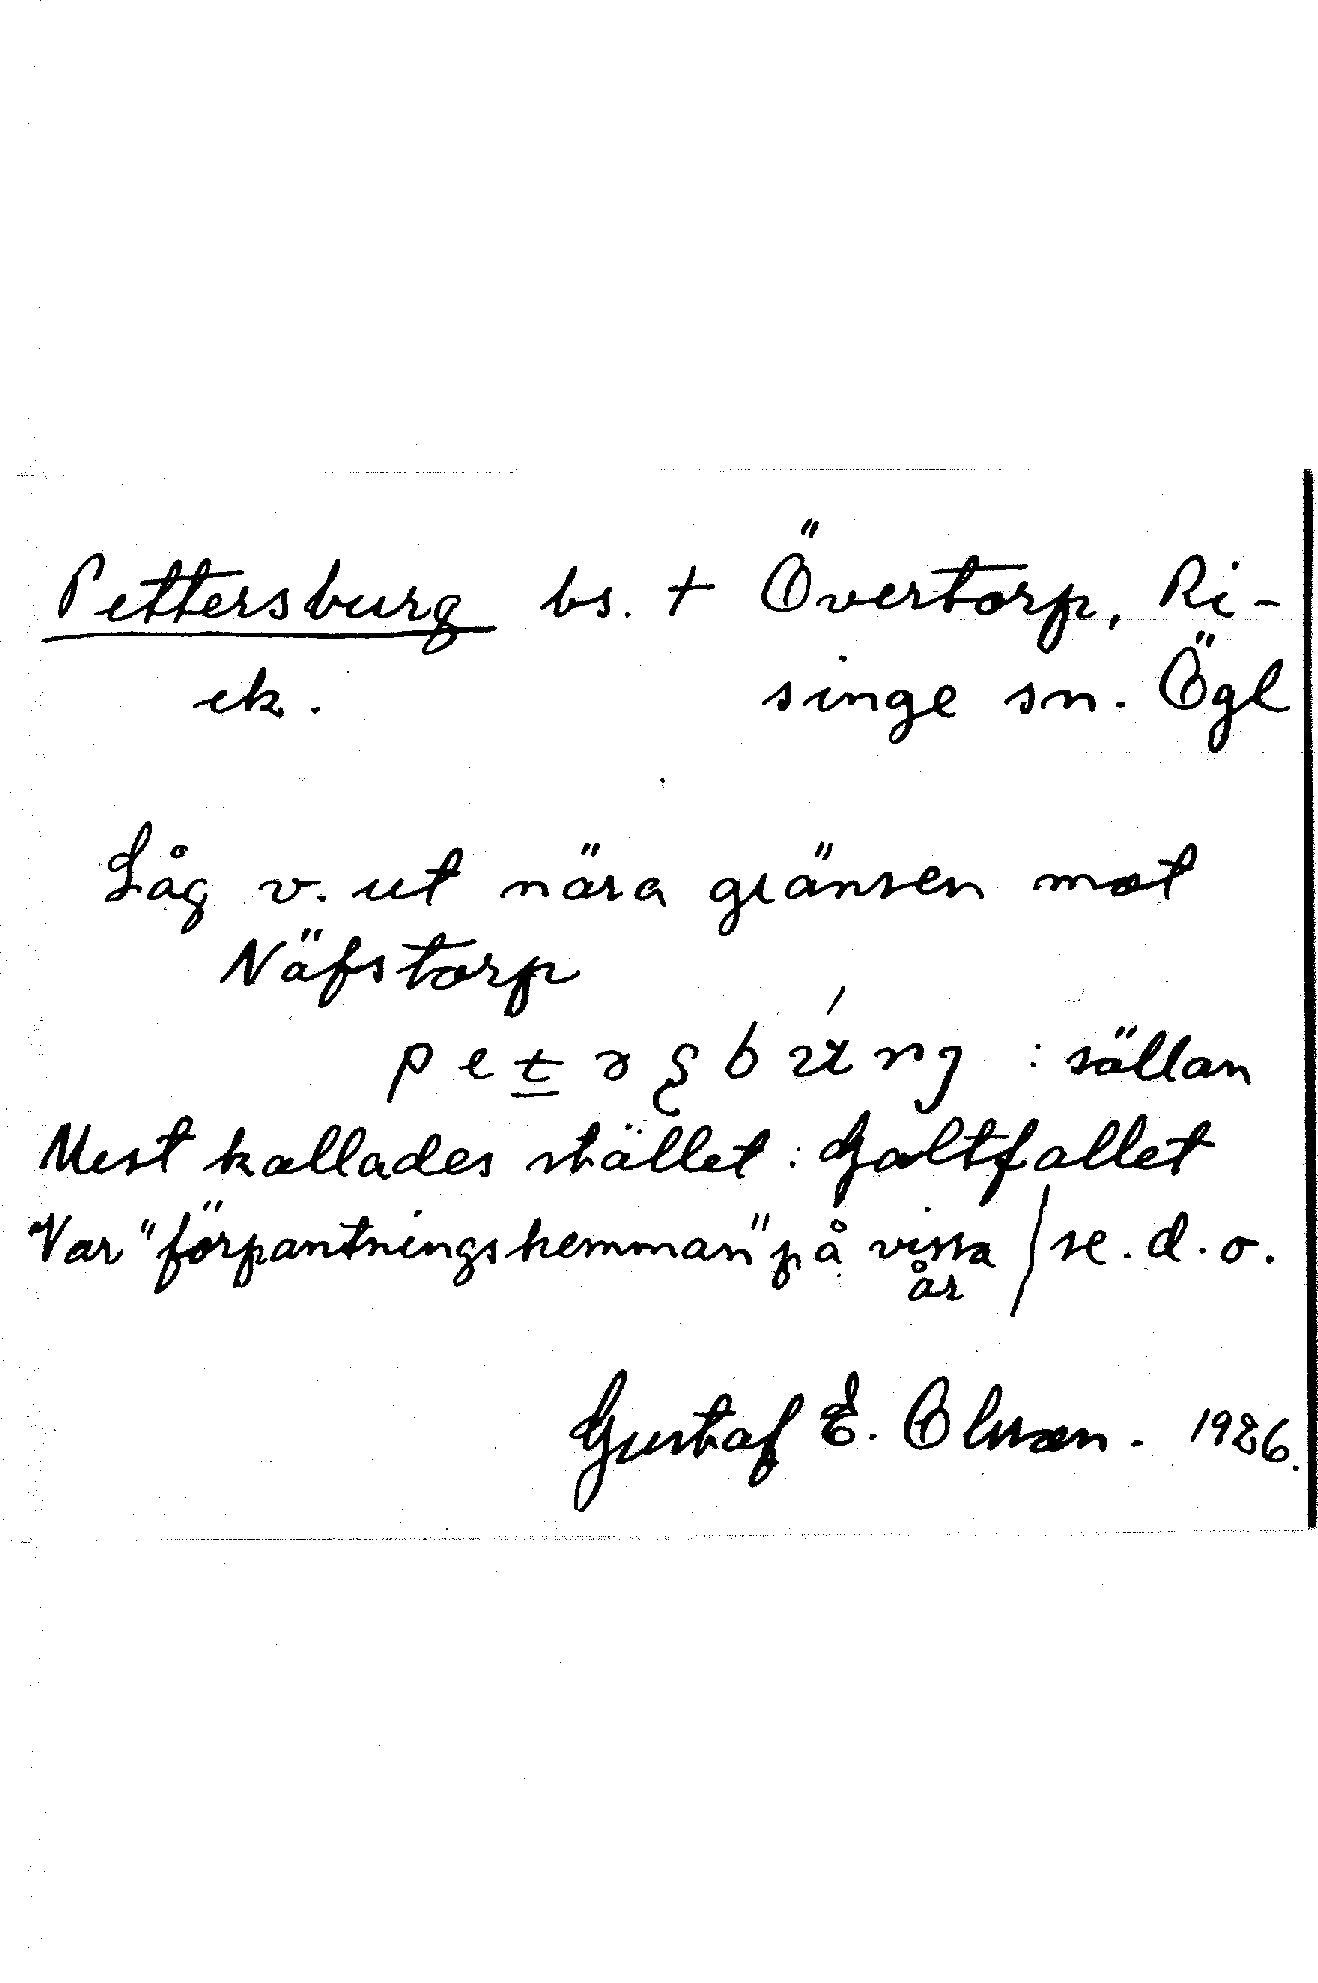 Pettersburg bs. + Övertorp, Ri-
ek. singe sn. Ögl
Låg v. ut nära gränsen mot
Näfstorp
: sällan
Mest kallades stället : Galtfallet
Var "förpantningshemman" på vissa / se. d. o.
år
Gustaf E. Olsson. 1926.